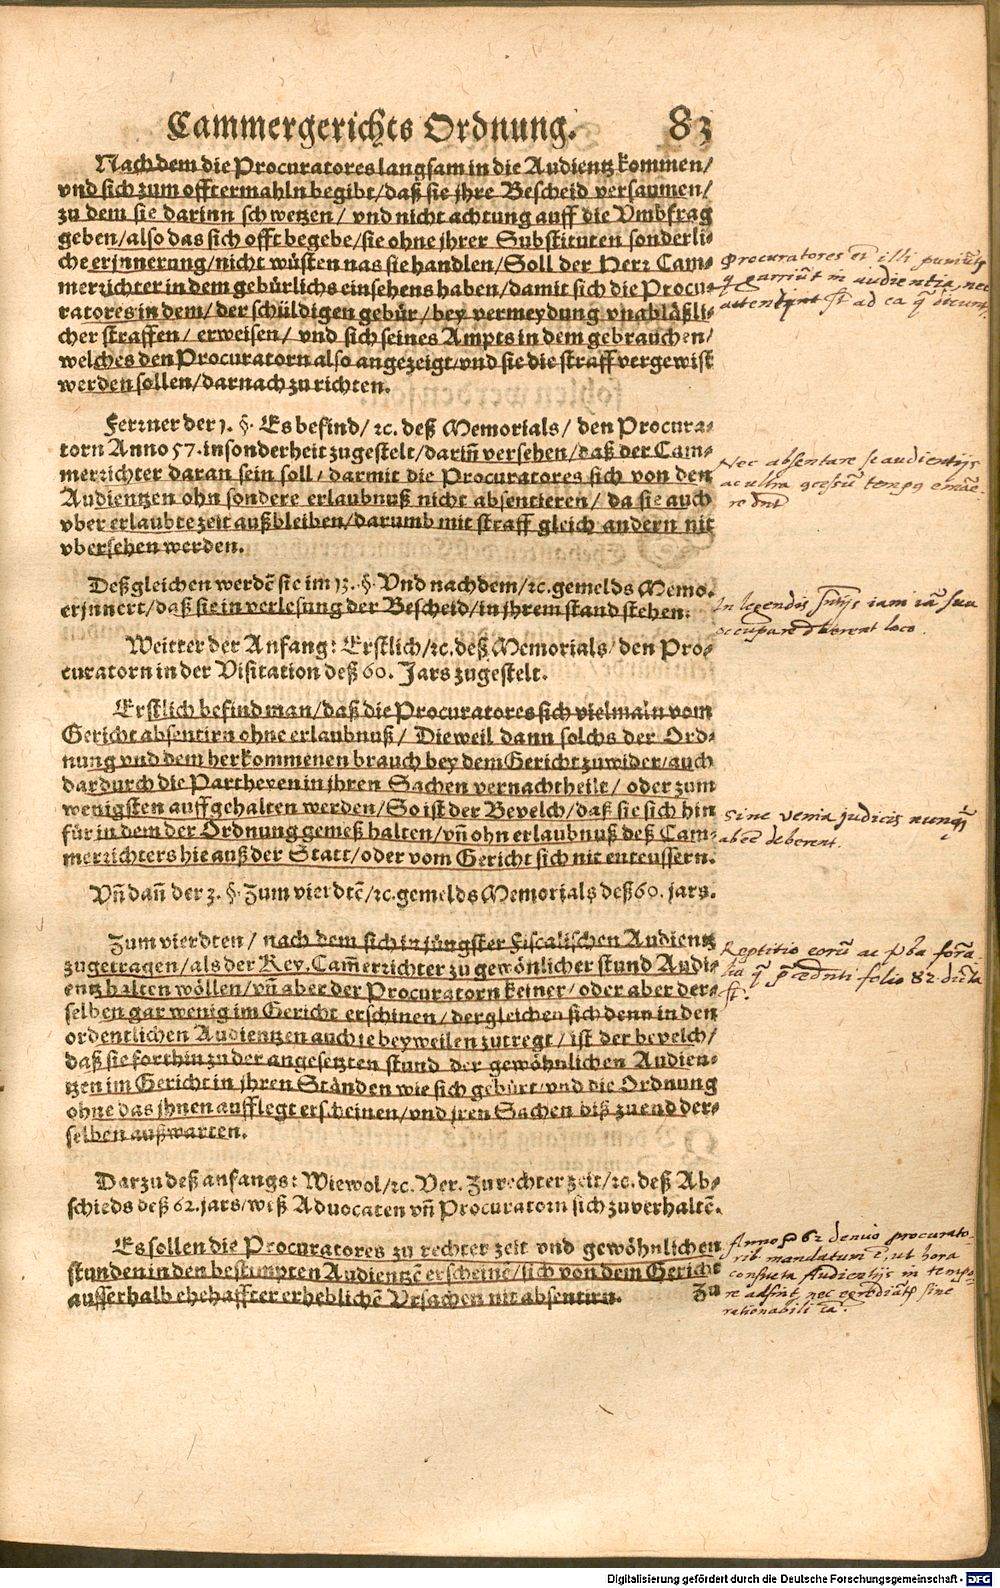 Cammergerichts Ordnung. 83
Nach dem die Procuratores langsam in die Audientz kommen/
vnd sich zum offtermahln begibt/daß sie jhre Bescheid versaumen/
zu dem sie darinn schwetzen/ vnd nicht achtung auff die Vmbfrag
geben/also das sich offt begebe/sie ohne jhrer Substituten sonderli-
che erjnnerung/nicht wüsten was sie handlen/Soll der Herr Cam-
merrichter in dem gebürlichs einsehens haben/damit sich die Procu-
ratores in dem/der schüldigen gebür/bey vermeydung vnabläßli-
cher straffen/ erweisen/ vnd sich seines Ampts in dem gebrauchen/
welches den Procuratorn also angezeigt/vnd sie die straff vergewist
werden sollen/darnach zu richten.
Ferrner der 1. §. Es befind/ ꝛc. deß Memorials/ den Procura-
torn Anno 57. insonderheit zugestelt/dariñ versehen/daß der Cam-
merrichter daran sein soll/darmit die Procuratores sich von den
Audientzen ohn sondere erlaubnuß nicht absentieren/ da sie auch
vber erlaubte zeit außbleiben/darumb mit straff gleich andern nit
vbersehen werden.
Deßgleichen werdē sie im 13. §. Vnd nachdem/ꝛc. gemelds Memo.
erjnnert/daß sie in verlesung der Bescheid/in jhrem stand stehen.
Weitter der Anfang: Erstlich/ꝛc. deß Memorials/den Pro-
curatorn in der Visitation deß 60. Jars zugestelt.
Erstlich befind man/daß die Procuratores sich vielmaln vom
Gericht absentirn ohne erlaubnuß/ Dieweil dann solchs der Ord-
nung vnd dem herkommenen brauch bey dem Gericht zuwider/auch
dardurch die Partheyen in jhren Sachen vernachtheilt/ oder zum
wenigsten auffgehalten werden/So ist der Bevelch/daß sie sich hin
für in dem der Ordnung gemeß halten/vñ ohn erlaubnuß deß Cam-
merrichters hie auß der Statt/oder vom Gericht sich nit enteussern.
Vñ dañ der 3. §. Zum vierdtē/ꝛc. gemelds Memorials deß 60. jars.
Zum vierdten/ nach dem sich in jüngster Fiscalischen Audientz
zugetragen/als der Key. Cam̃errichter zu gewönlicher stund Audi-
entz halten wöllen/vñ aber der Procuratorn keiner/ oder aber der-
selben gar wenig im Gericht erschinen/dergleichen sich denn in den
ordentlichen Audientzen auch je beyweilen zutregt/ ist der bevelch/
daß sie forthin zu der angesetzten stund der gewöhnlichen Audien-
tzen im Gericht in jhren Ständen wie sich gebürt/vnd die Ordnung
ohne das jhnen aufflegt erscheinen/vnd jren Sachen biß zu end der-
selben außwarten.
Darzu deß anfangs: Wiewol/ꝛc. Ver. Zu rechter zeit/ꝛc. deß Ab-
schieds deß 62. jars/weß Advocaten vñ Procuratorn sich zuverhaltē.
Es sollen die Procuratores zu rechter zeit vnd gewöhnlichen
stunden in den bestimpten Audientzē erscheinē/sich von dem Gericht
ausserhalb ehehaffter erheblichē Vrsachen nit absentirn.
Zu
Procuratores et illi
garriūt in audientia, nec
attendunt ad ea q dicunt
Nec absentare se audientijs
ac ultra tempus
In legendis iam suu
occupare debereant loco.
Sine venia judicis nunq
abee deberent.
Reptitio eorū ac
folio 82. dicta
Anno 62 denuo procurato-
rib mandatum ē, ut hora
consueta Audientijs in tempo-
re adsint, nec egrediāt sine
rationabili
Digitalisierung gefördert durch die Deutsche Forschungsgemeinschaft - DFG